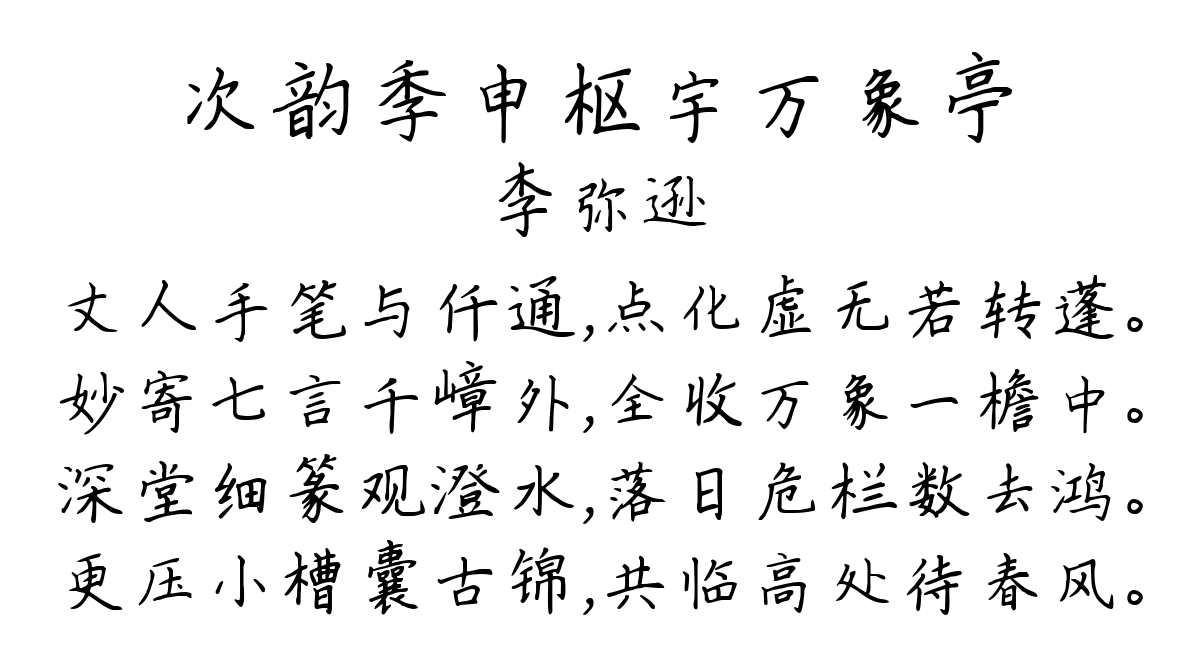 次韵季申枢宇万象亭
李弥逊
丈人手笔与仟通,点化虚无若转蓬。
妙寄七言千嶂外,全收万象一檐中。
深堂细篆观澄水,落日危栏数去鸿。
更压小槽囊古锦,共临高处待春风。